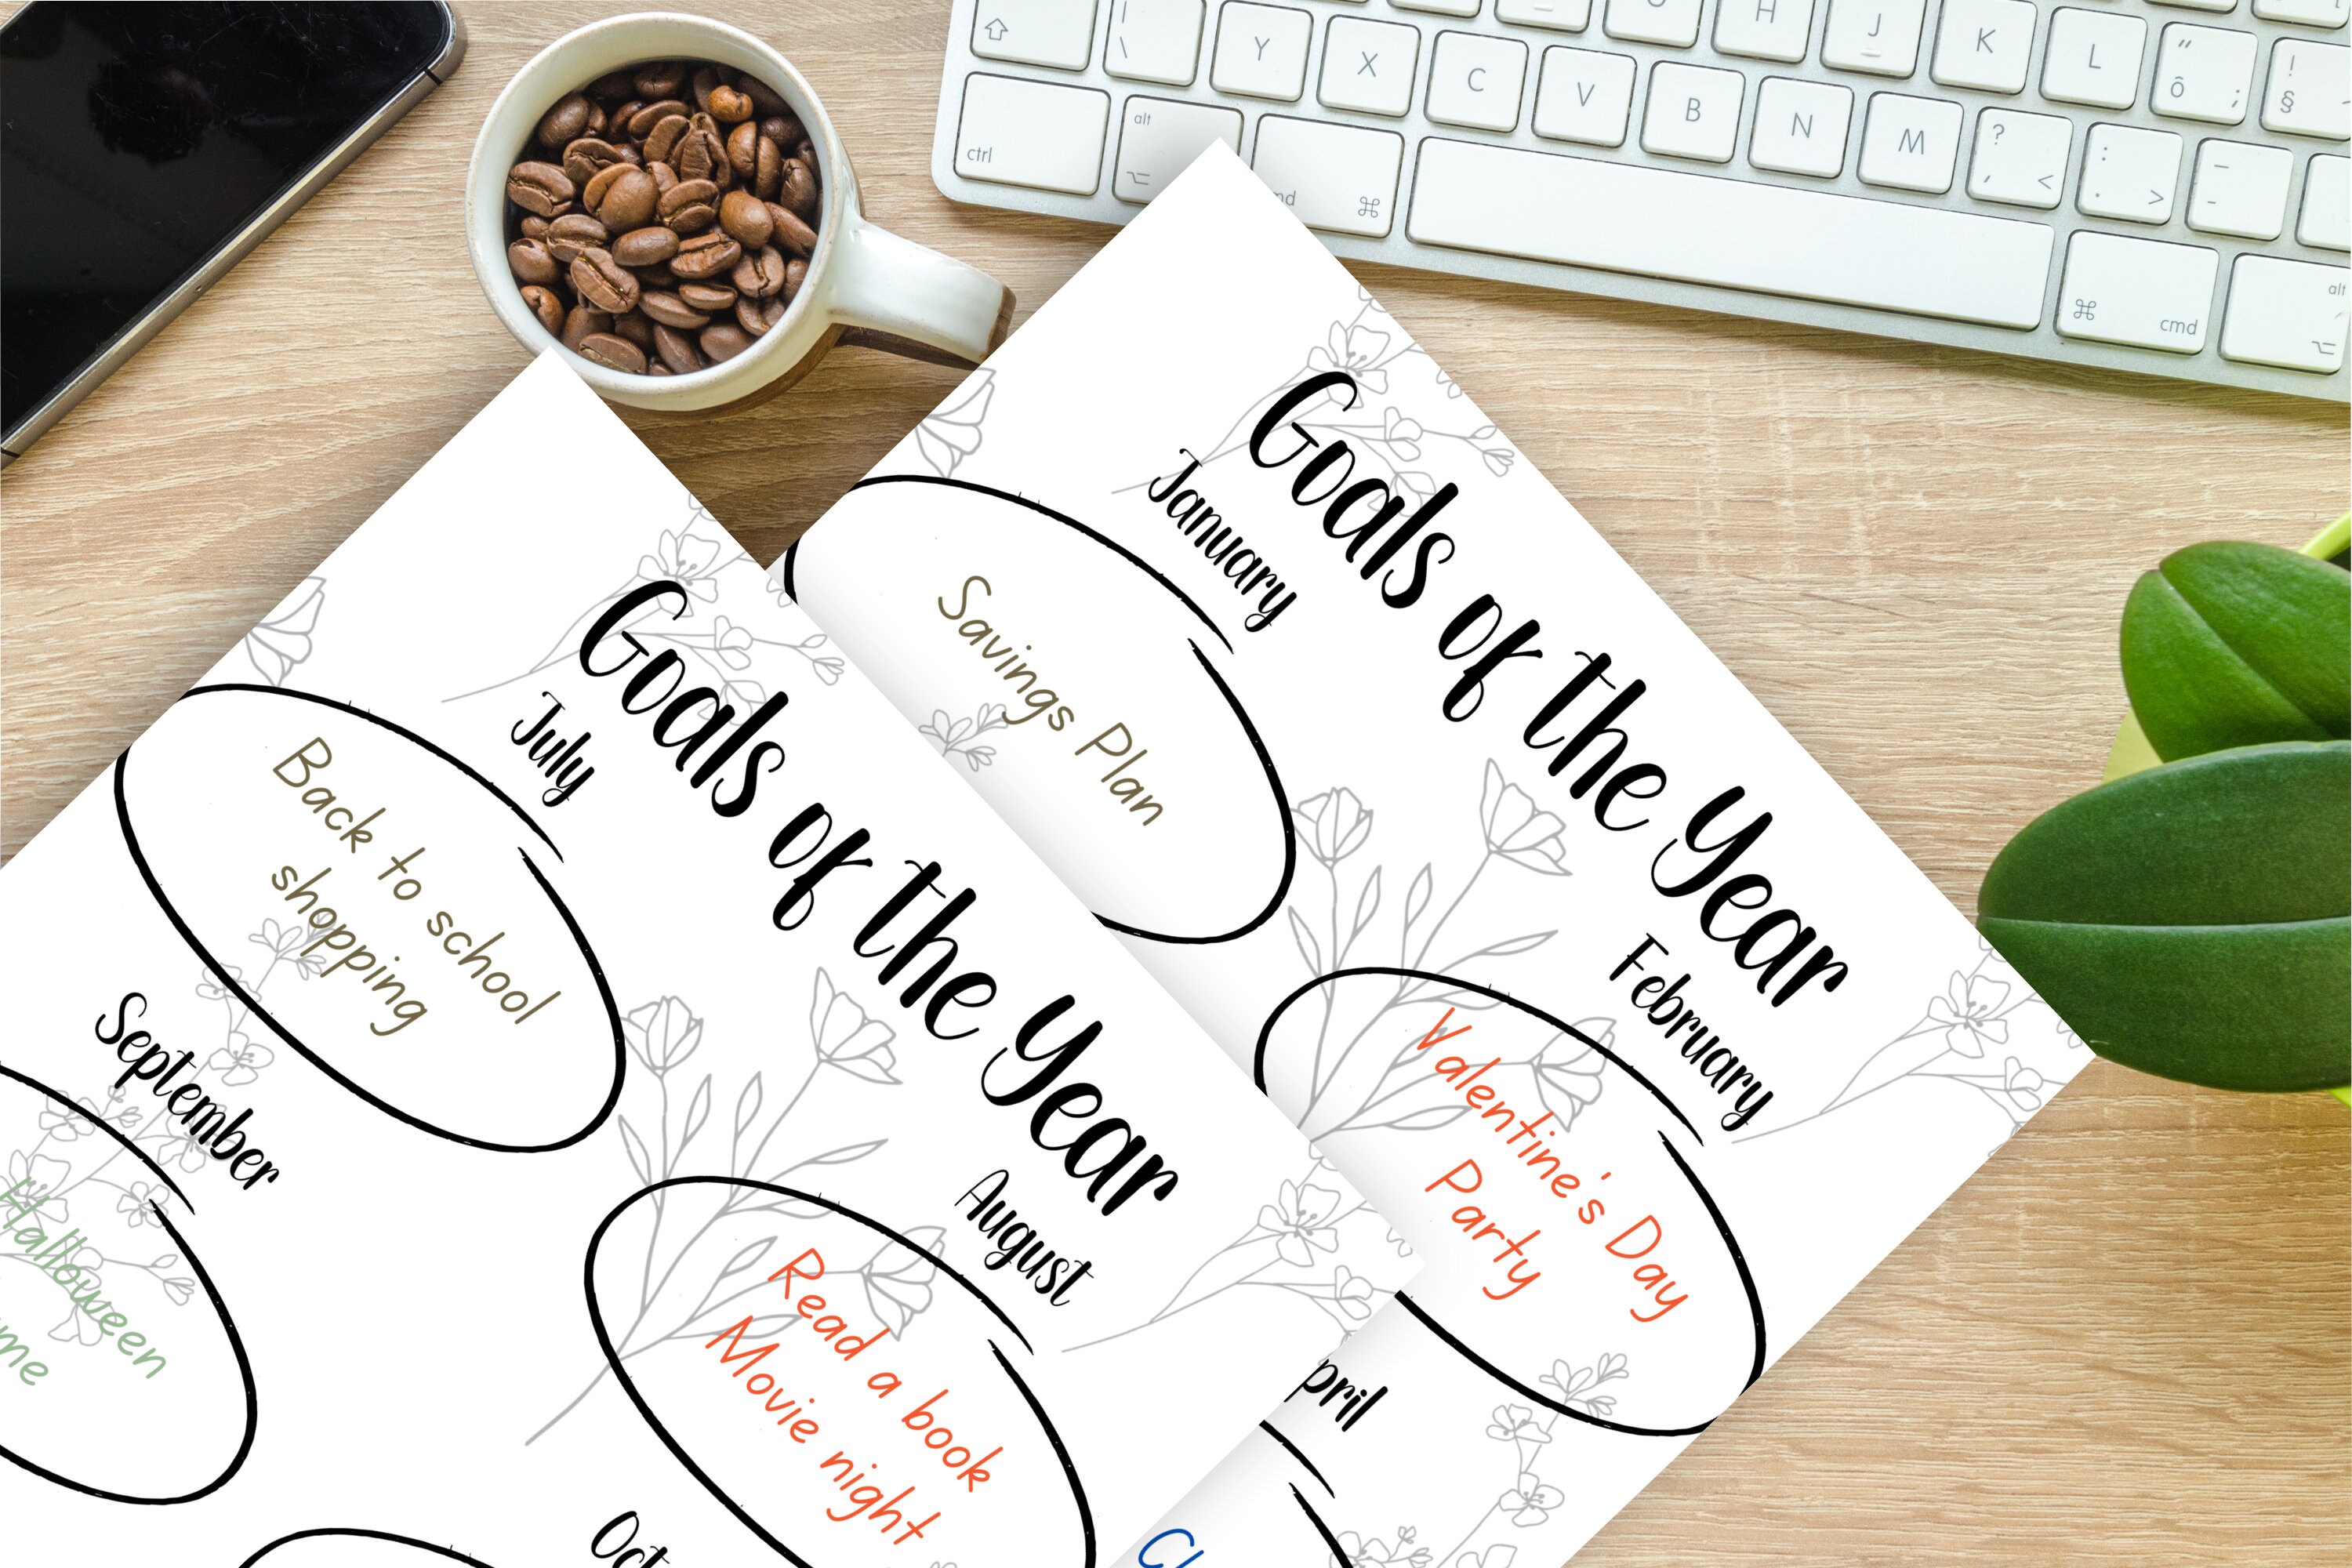 Goals of the Year
January
Savings Plan
February
Valentine's Day
Party
pril
Goals of the Year
July
Back to school
shopping
August
Read a book
Movie night
September
Halloween
me
Oct
ctrl
alt
cmd
Y X C V B N M
H J K L
alt